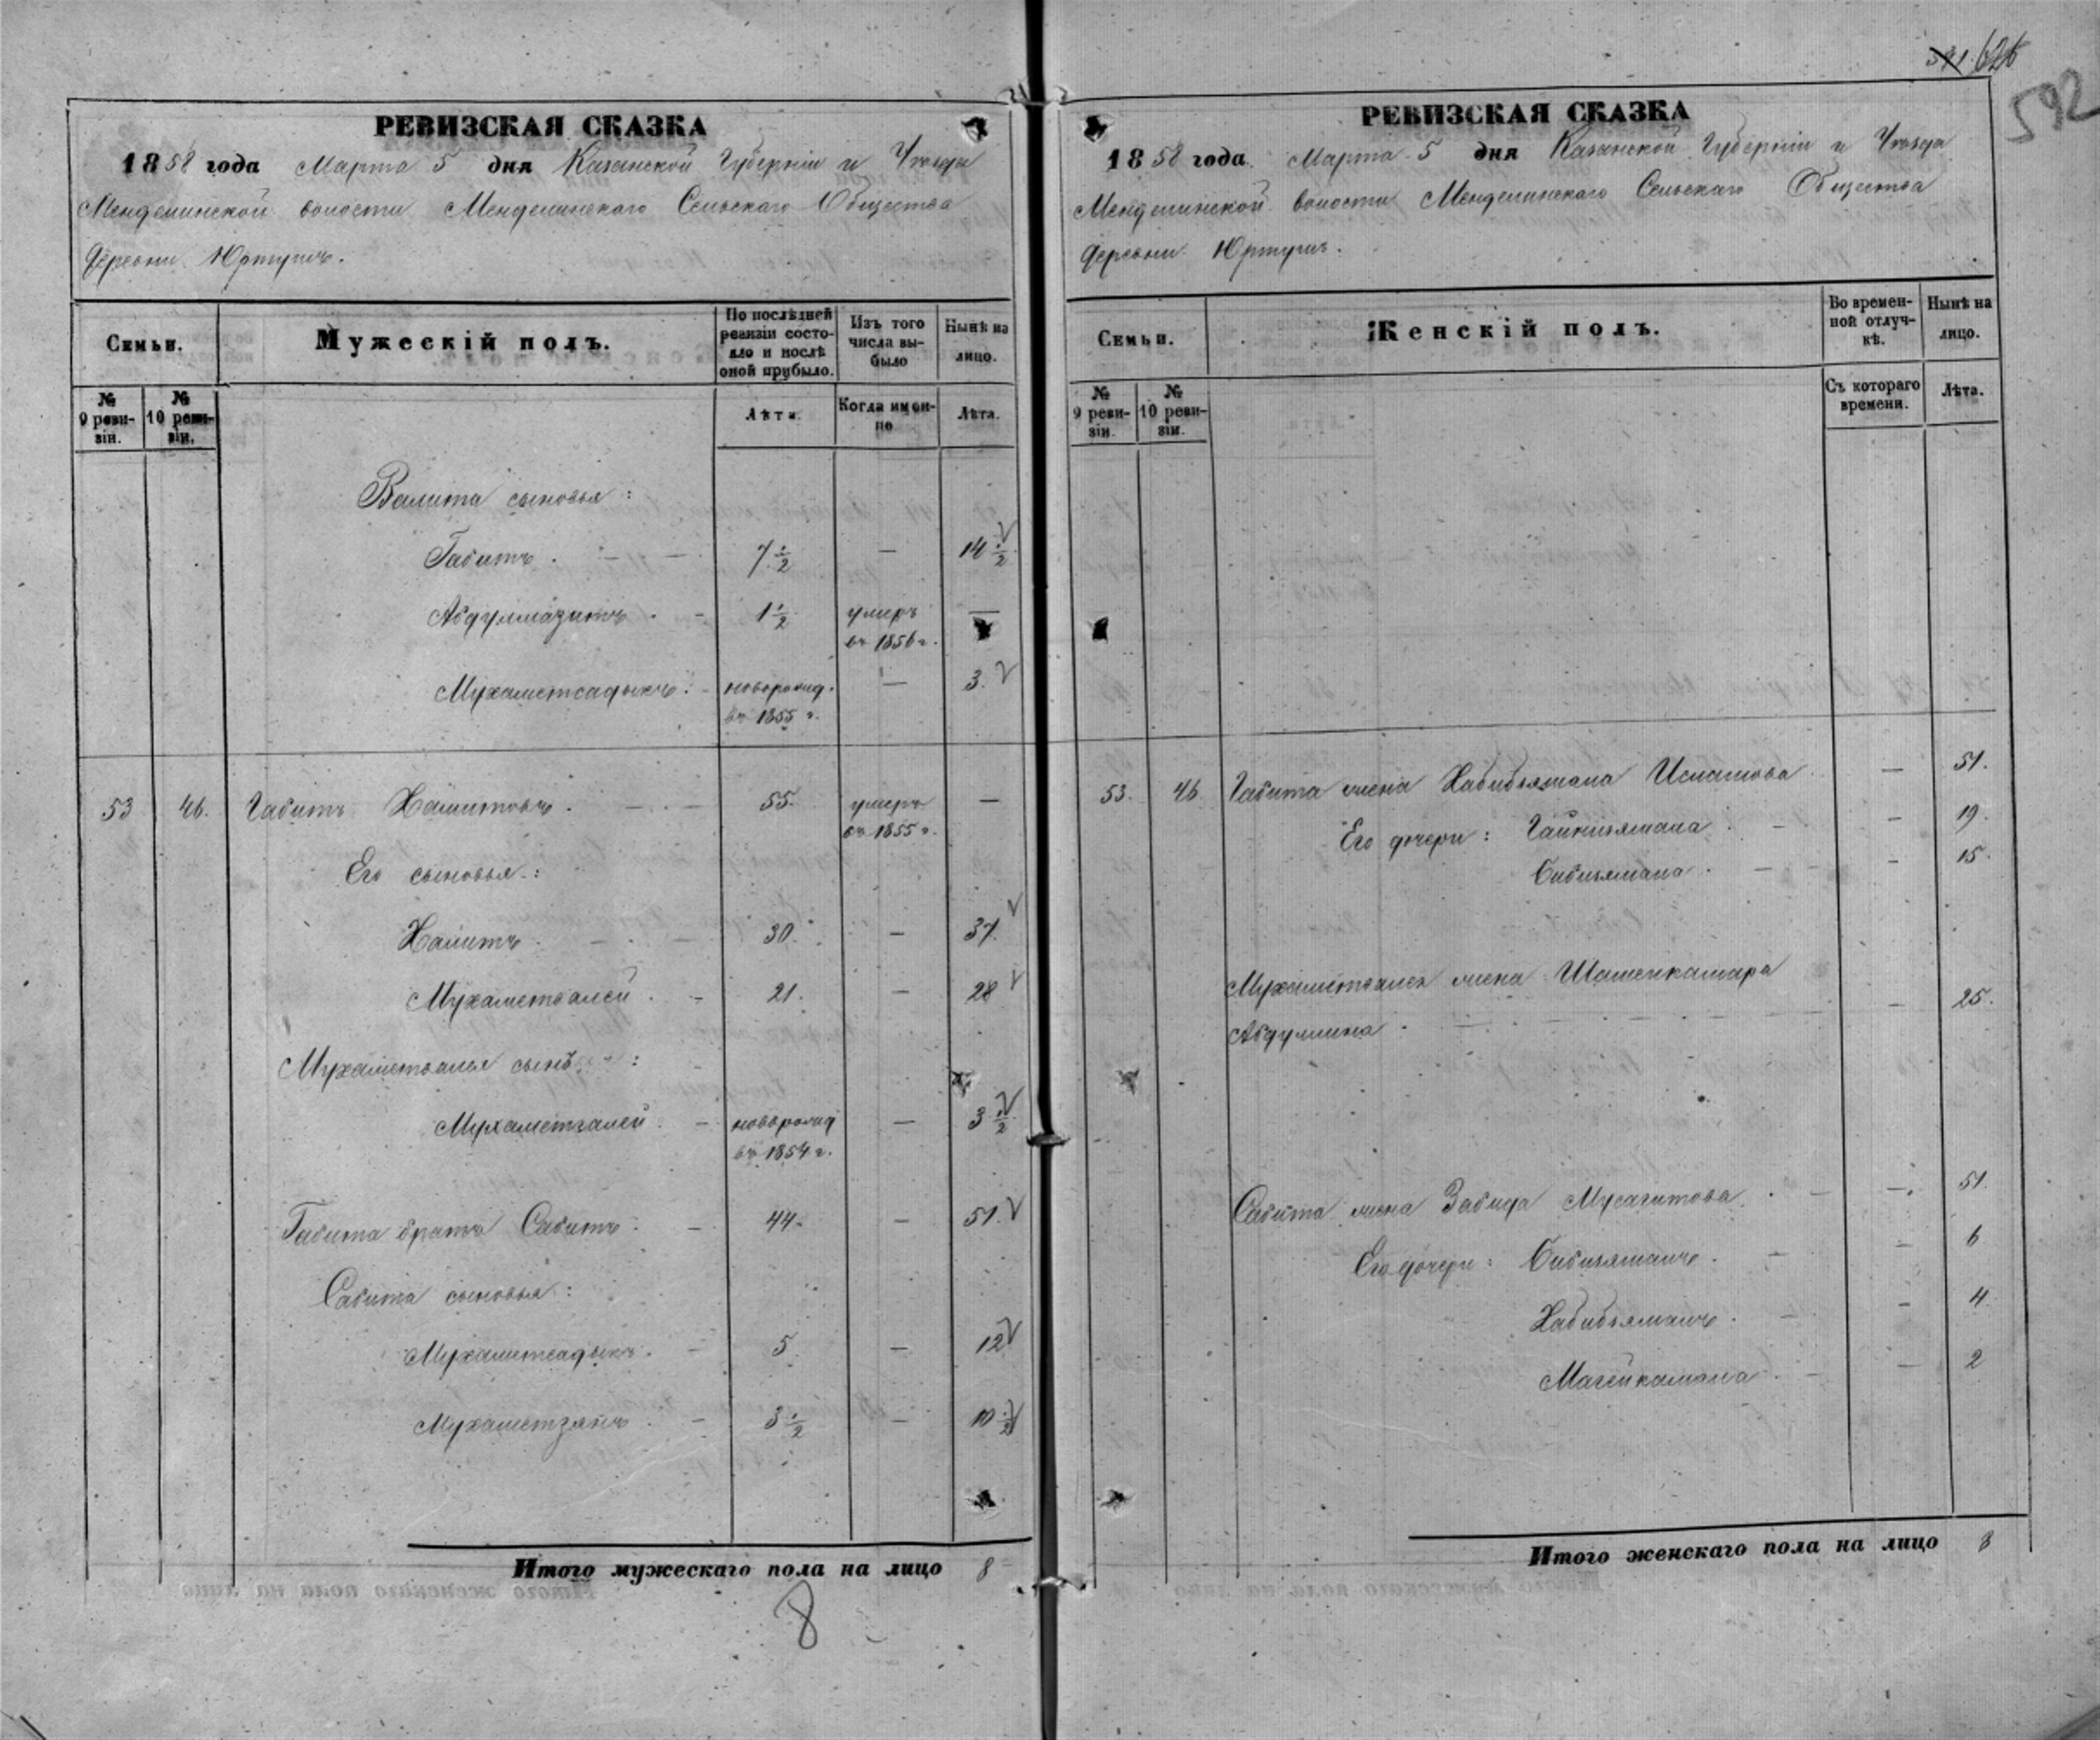 РЕВИЗСКАЯ СКАЗКА
1858 года Марта 5 дня Казанской Губерніи и Уѣзда
Менделинской волости Менделинскаго Сельскаго Общества
деревни Юртушъ.
Семьи.
Мужескій полъ.
По послѣдней ревизіи состояло и послѣ оной прибыло.
Изъ того числа выбыло
Нынѣ на лицо.
№ 9 ревизіи.
№ 10 ревизіи.
Лѣта.
Когда именно
Лѣта.
Валита сыновья:
Габитъ. 7 1/2 — 14 1/2
1 1/2 умеръ въ 1856 г. —
Мухаметсадыкъ. новорожд. въ 1855 г. — 3.
53 46. Габитъ Халитовъ. 55. умеръ въ 1855 г. —
Его сыновья:
Халитъ. 30. — 37.
Мухаметвалей. 21. — 28
Мухаметвалея сынъ:
Мухаметгалей. новорожд въ 1854 г. — 3 1/2
Габита братъ Сабитъ. 44. — 51.
Сабита сыновья:
Мухаметсадыкъ. 5. — 12
Мухаметзянъ. 3 1/2 — 10 1/2
Итого мужескаго пола на лицо 8
8
591. 626
592
РЕВИЗСКАЯ СКАЗКА
1858 года. Марта 5 дня Казанской Губерніи и Уѣзда
Менделинской волости Менделинскаго Сельскаго Общества
деревни Юртушъ.
Семьи.
Женскій полъ.
Во временной отлучкѣ.
Нынѣ на лицо.
№ 9 ревизіи.
№ 10 ревизіи.
Съ котораго времени.
Лѣта.
53. 46 Габита жена Хабибзямала — 51.
Его дочери: — 19.
Бибизямала. — 15.
Мухаметвалея жена
Абдуллина. — 25.
Сабита жена Забида Мусагитова. — 51.
Его дочери: — 6
— 4
— 2
Итого женскаго пола на лицо 8